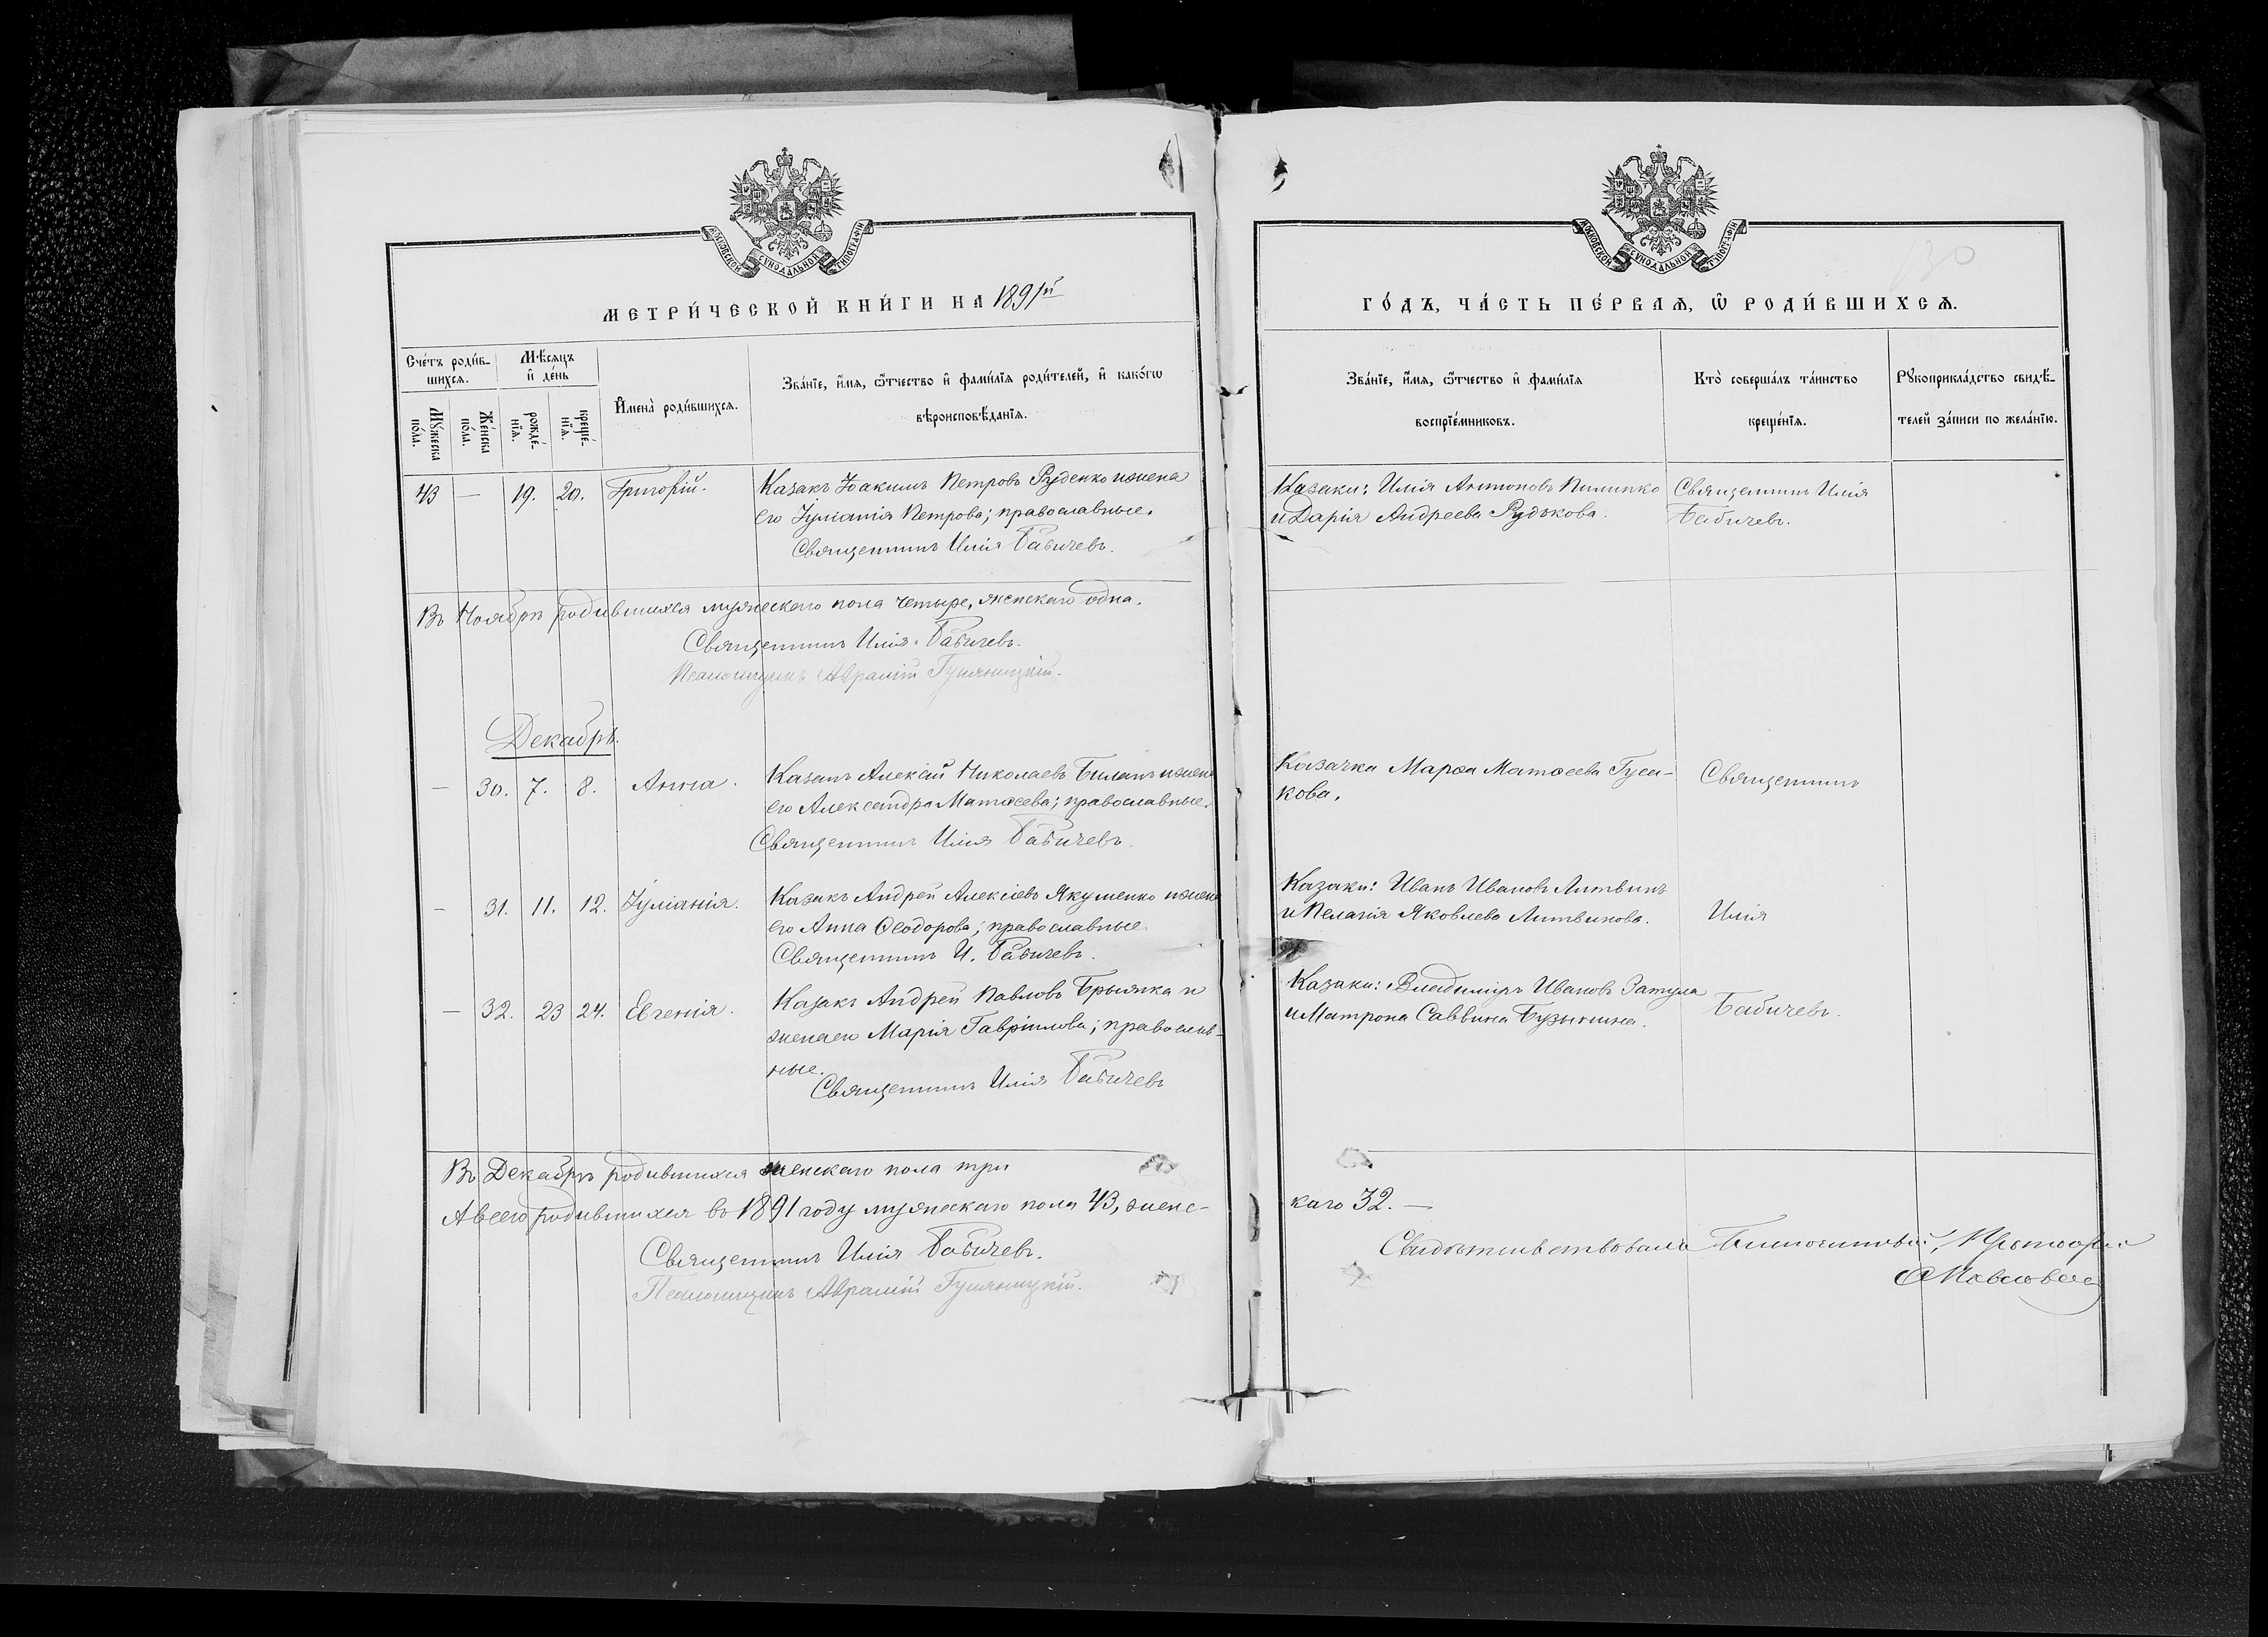 МОСКОВСКОЙ СѴНОДАЛЬНОЙ ТИПОГРАФІИ
МЕТРИ́ЧЕСКОЙ КНИ́ГИ НА 1891й
Сче́тъ роди́в-
шихсѧ.
Мѣ́сѧцъ
и҆ де́нь
Мꙋ́жеска
по́ла.
Же́нска
по́ла.
рожде́-
нїѧ.
креще́-
нїѧ.
И҆мена̀ роди́вшихсѧ.
Зва́нїе, и҆́мѧ, ѻ҆́тчество и҆ фами́лїѧ роди́телей, и҆ како́гѡ
вѣроисповѣ́данїѧ.
43 — 19. 20. Григорій.
Казакъ Іоакимъ Петровъ Руденко и жена
его Іуліанія Петрова; православные.
Священникъ Илія Бабичевъ.
Въ Ноябрѣ родившихся мужескаго пола четыре, женскаго одна.
Священникъ Илія Бабичевъ.
Псаломщикъ Аврамій
Декабрь.
— 30. 7. 8. Анна.
Казакъ Алексѣй Николаевъ Биланъ и жена
его Александра Матѳеева; православные.
Священникъ Илія Бабичевъ.
— 31. 11. 12. Іуліанія.
Казакъ Андрей Алексіевъ Якуменко и жена
его Анна Ѳеодорова; православные.
Священникъ И. Бабичевъ.
— 32. 23 24. Евгенія.
Казакъ Андрей Павловъ и
жена его Марія Гавріилова; православ-
ные.
Священникъ Илія Бабичевъ
Въ Декабрѣ родившихся женскаго пола три
А всего родившихся въ 1891 году мужескаго пола 43, женс-
Священникъ Илія Бабичевъ.
Псаломщикъ Аврамій
МОСКОВСКОЙ СѴНОДАЛЬНОЙ ТИПОГРАФІИ
130
ГО́ДЪ, ЧА́СТЬ ПЕ́РВАѦ, Ѡ҆ РОДИ́ВШИХСѦ.
Зва́нїе, и҆́мѧ, ѻ҆́тчество и҆ фами́лїѧ
воспрїе́мниковъ.
Кто̀ соверша́лъ та́инство
креще́нїѧ.
Рꙋкоприкла́дство свидѣ́-
телей за́писи по жела́нїю.
Казаки: Илія Антоновъ
и Дарія Андреева Рудькова.
Священникъ Илія
Бабичевъ.
Казачка Марѳа Матѳеева Гуса-
кова.
Священникъ
Казаки: Иванъ Ивановъ Литвинъ
и Пелагія Яковлева Литвинова.
Илія
Казаки: Владиміръ Ивановъ Затула
и Матрона Саввина
Бабичевъ.
каго 32. —